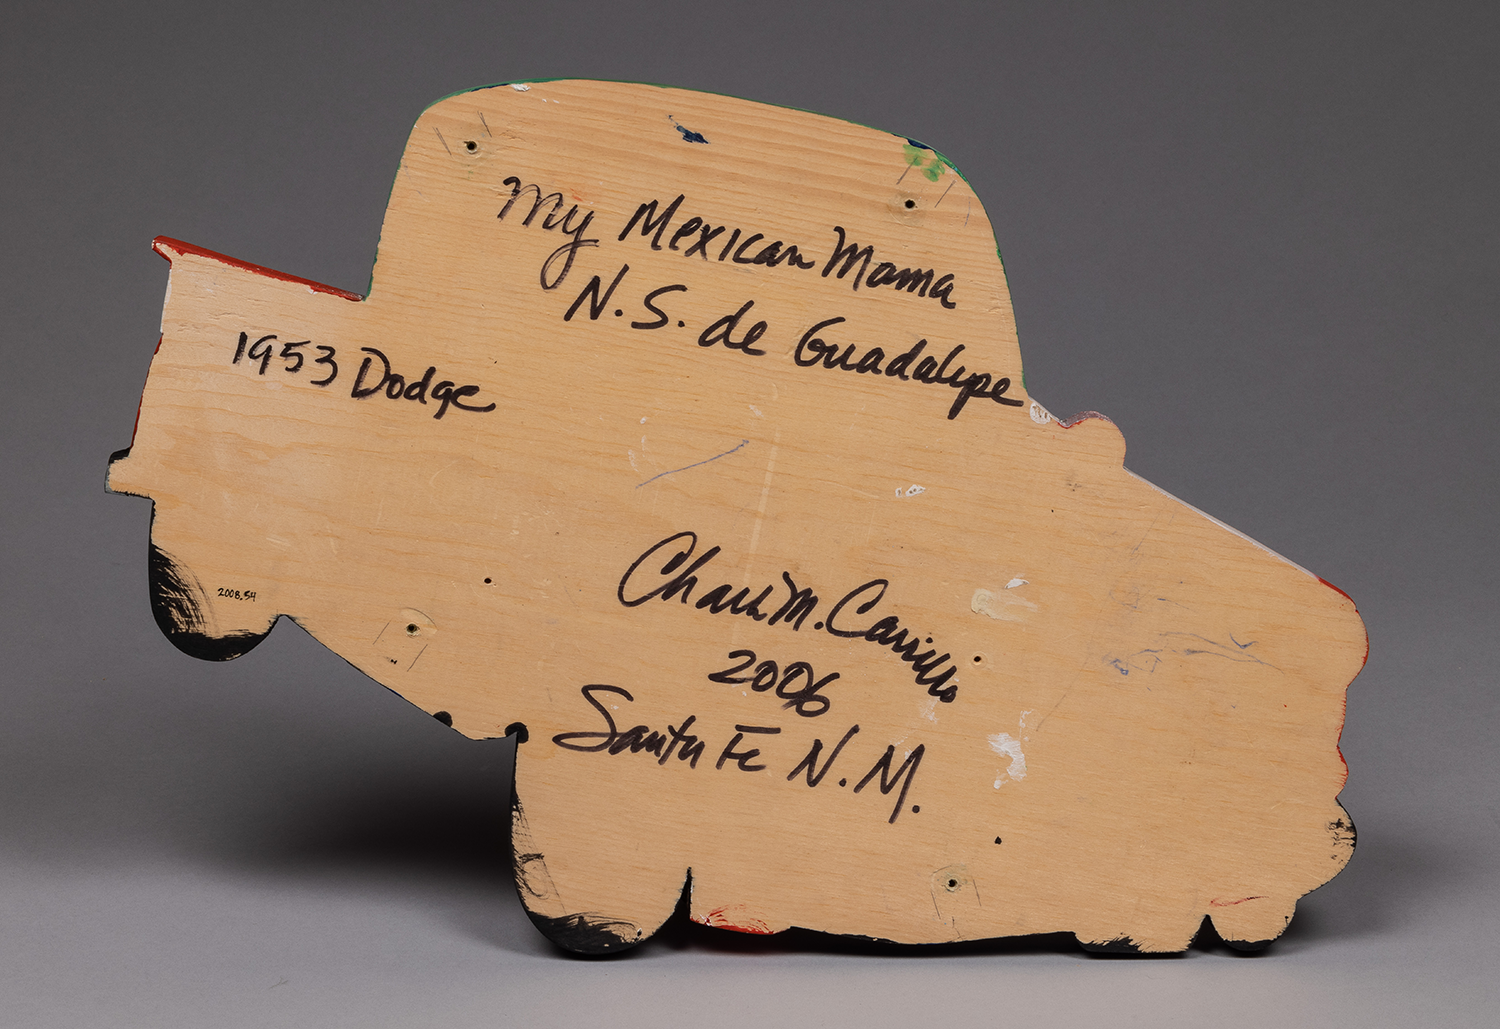 My Mexican Mama
N.S. de Guadalupe
1953 Dodge
2008.54
Charlie M. Carrillo
2006
Santa Fe N.M.